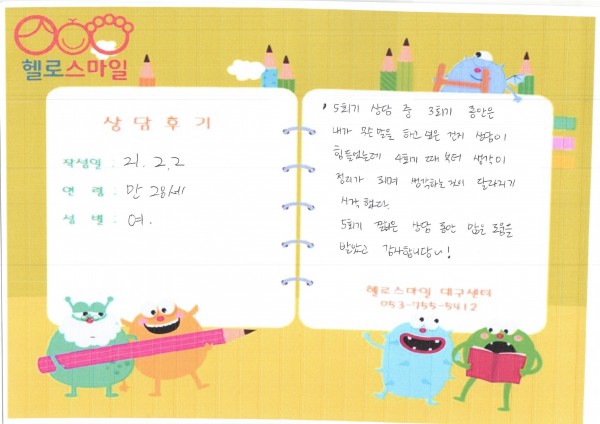 헬로스마일
상담후기
작성일 : 21. 2. 2
연 령 : 만 28세
성 별 : 여.
5회기 상담 중 3회기 동안은
내가 무슨 말을 하고 싶은 건지 생각이
힘들었는데 4회기 때 부터 생각이
정리가 되며 생각하는 것이 달라지기
시작했다.
5회기 짧은 상담 동안 많은 도움을
받았고 감사합니당~!
헬로스마일 대구센터
053-755-5412